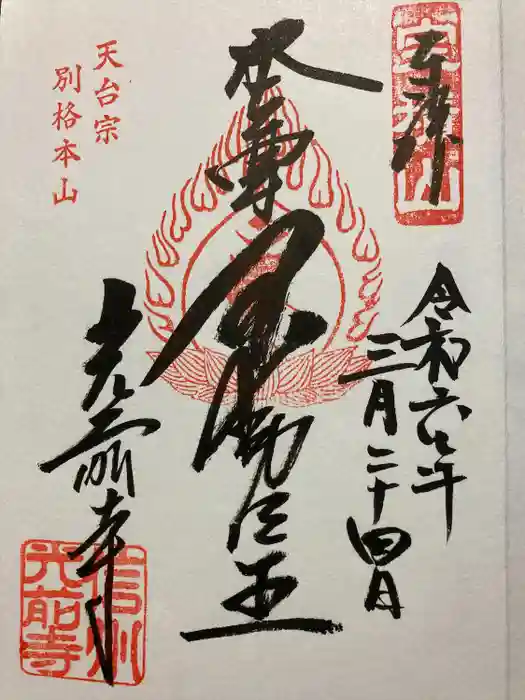 奉拝
宝積山
令和六年
三月二十四日
本尊
不動明王
天台宗
別格本山
光前寺
信州
光前寺